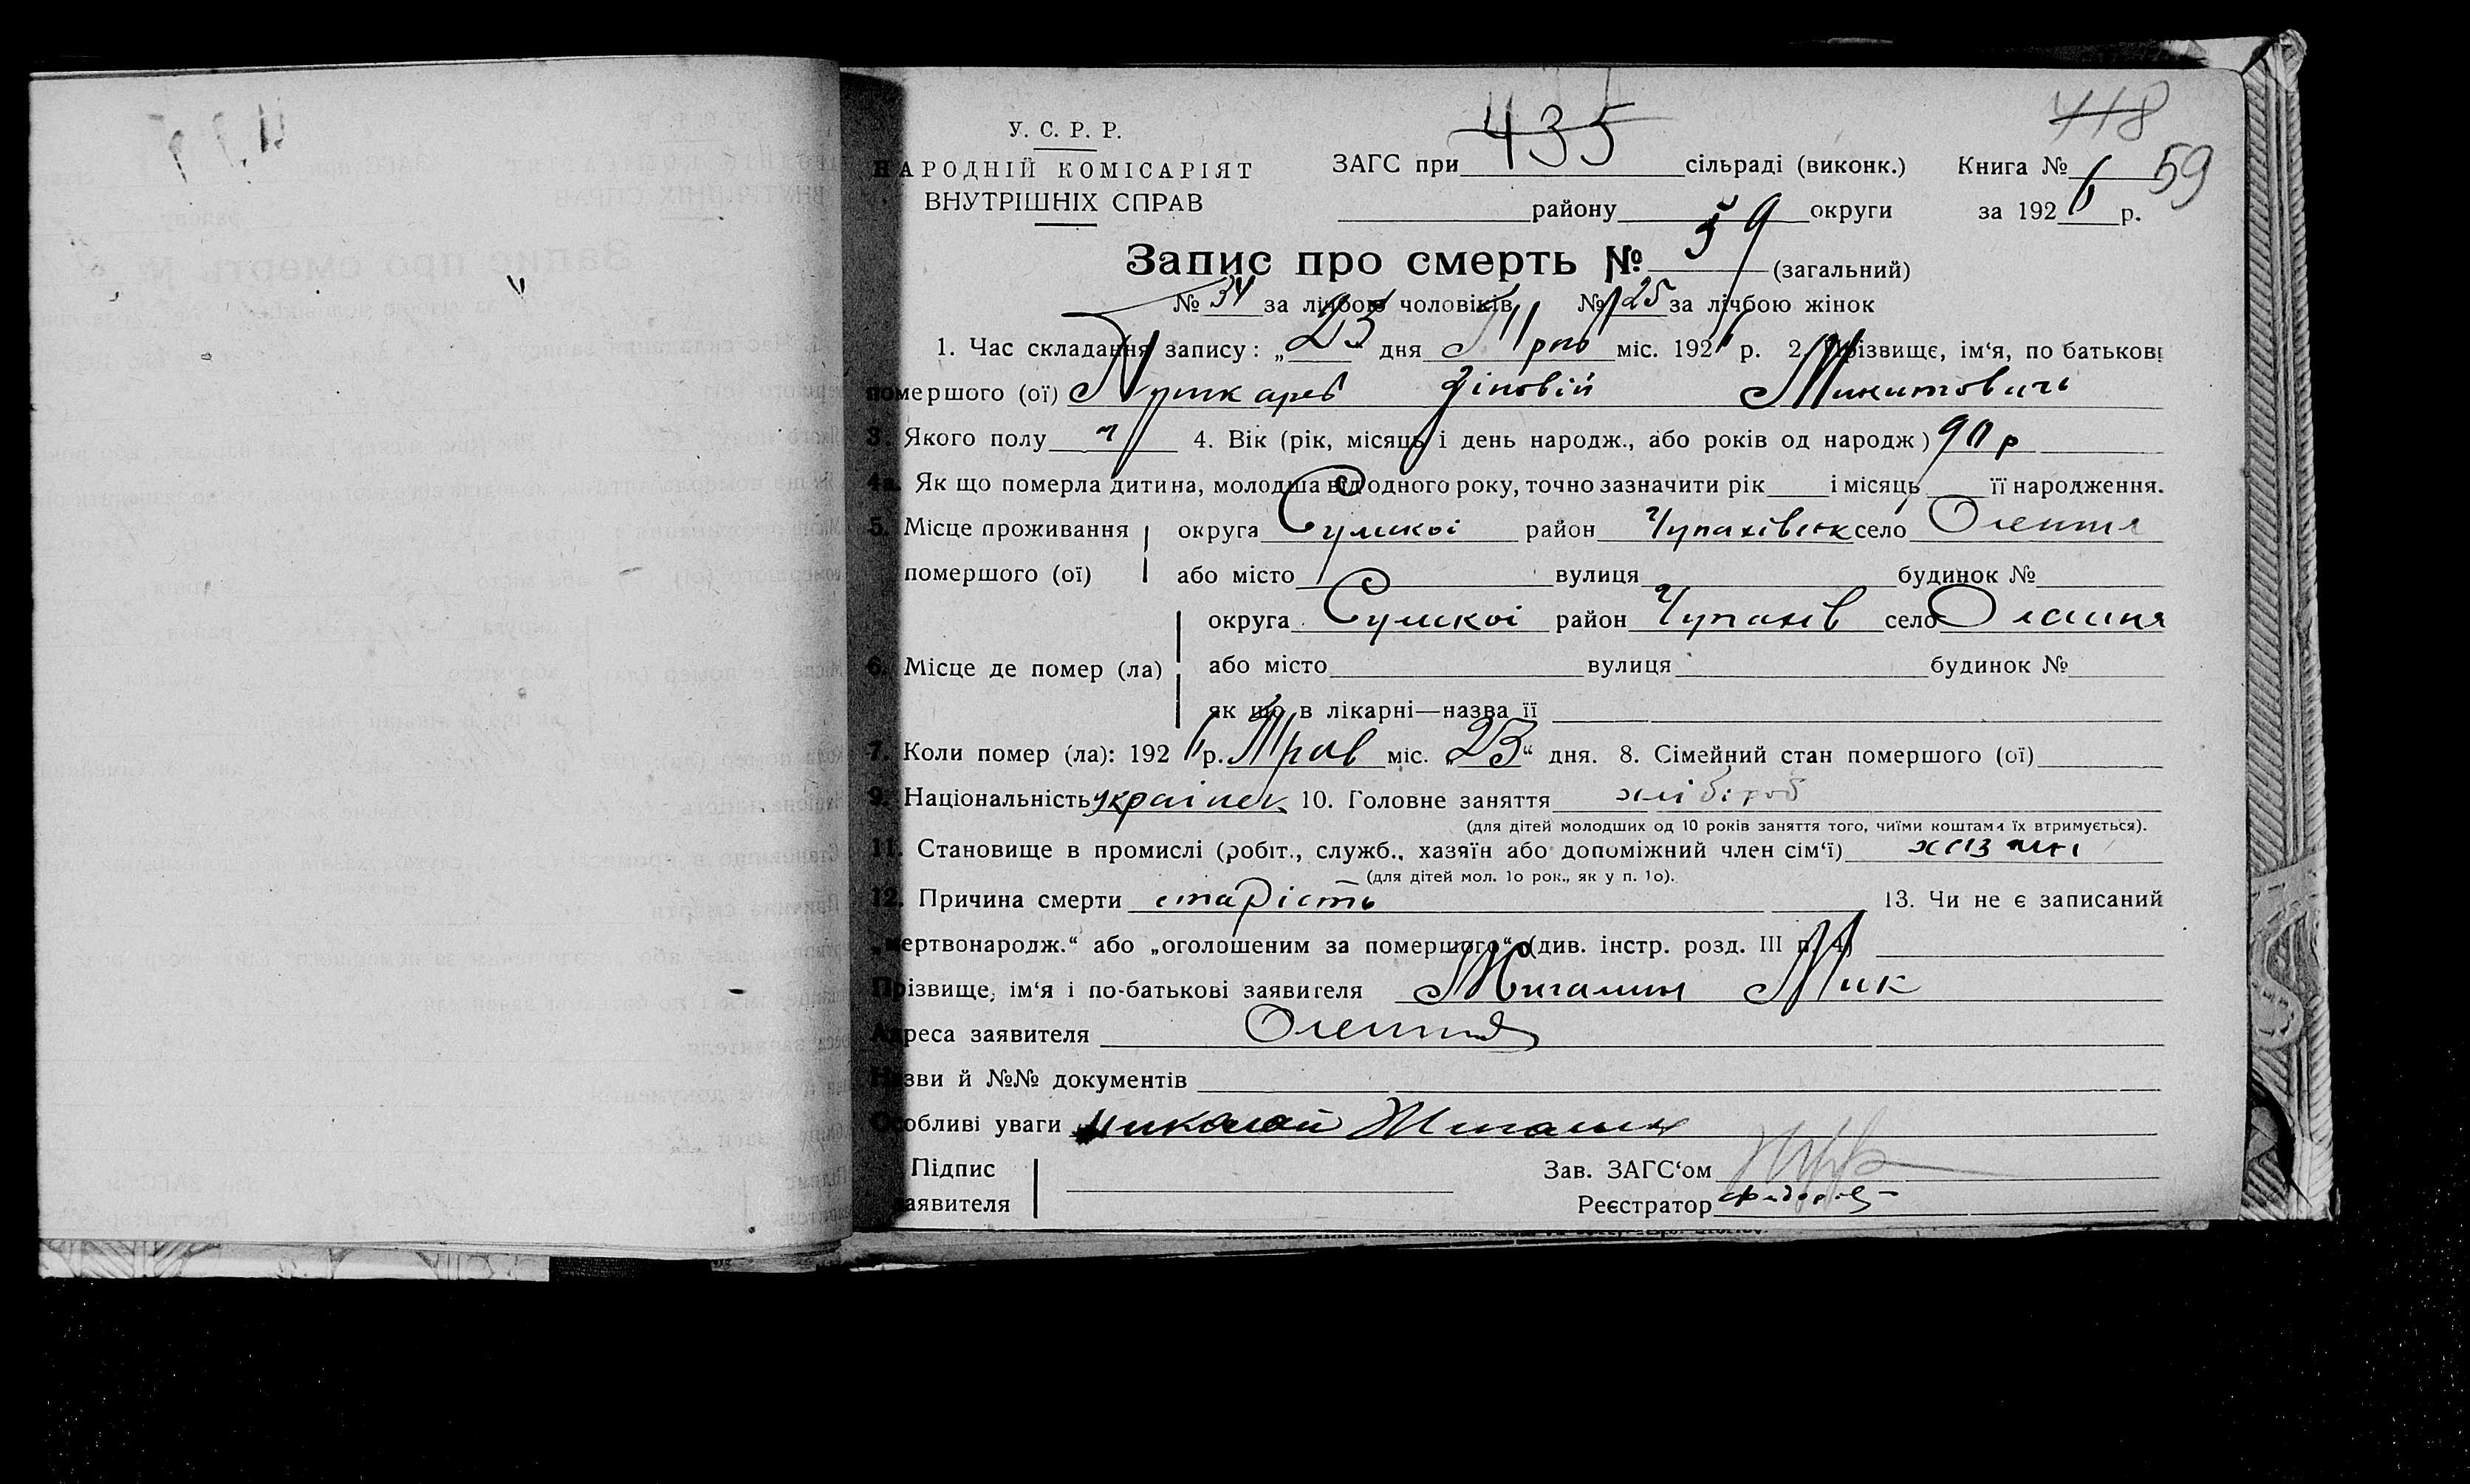 435
418
У. С. Р. Р.
НАРОДНІЙ КОМІСАРІЯТ
ВНУТРІШНІХ СПРАВ
ЗАГС при сільраді (виконк.) Книга № 59
району округи за 1926 р.
Запис про смерть № 59 (загальний)
№ 34 за лічбою чоловіків № 25 за лічбою жінок
1. Час складання запису: „23" дня міс. 1926 р. 2. Прізвище, ім'я, по батькові
помершого (ої) Зіновій Микитовичь
3. Якого полу ч 4. Вік (рік, місяць і день народж., або років од народж) 90 р
4а. Як що померла дитина, молодша від одного року, точно зазначити рік і місяць її народження.
5. Місце проживання округа Сумскоі район Чупахівск село Олешня
помершого (ої) або місто вулиця будинок №
округа Сумскоі район Чупахів село Олешня
6. Місце де помер (ла) або місто вулиця будинок №
як що в лікарні—назва її
7. Коли помер (ла): 1926 р. Трав міс. „23" дня. 8. Сімейний стан помершого (ої)
9. Національність українец 10. Головне заняття хлібороб
(для дітей молодших од 10 років заняття того, чиїми коштами їх втримується).
11. Становище в промислі (робіт., служб., хазяїн або допоміжний член сім'ї)
(для дітей мол. 10 рок., як у п. 10).
12. Причина смерти старість 13. Чи не є записаний
„мертвонародж." або „оголошеним за помершого" (див. інстр. розд. III п. 4)
Прізвище, ім'я і по-батькові заявителя Жигалин Мик
Адреса заявителя Олешня
Назви й №№ документів
Особливі уваги Николай Жигалин
Підпис Зав. ЗАГС'ом
заявителя Реєстратор